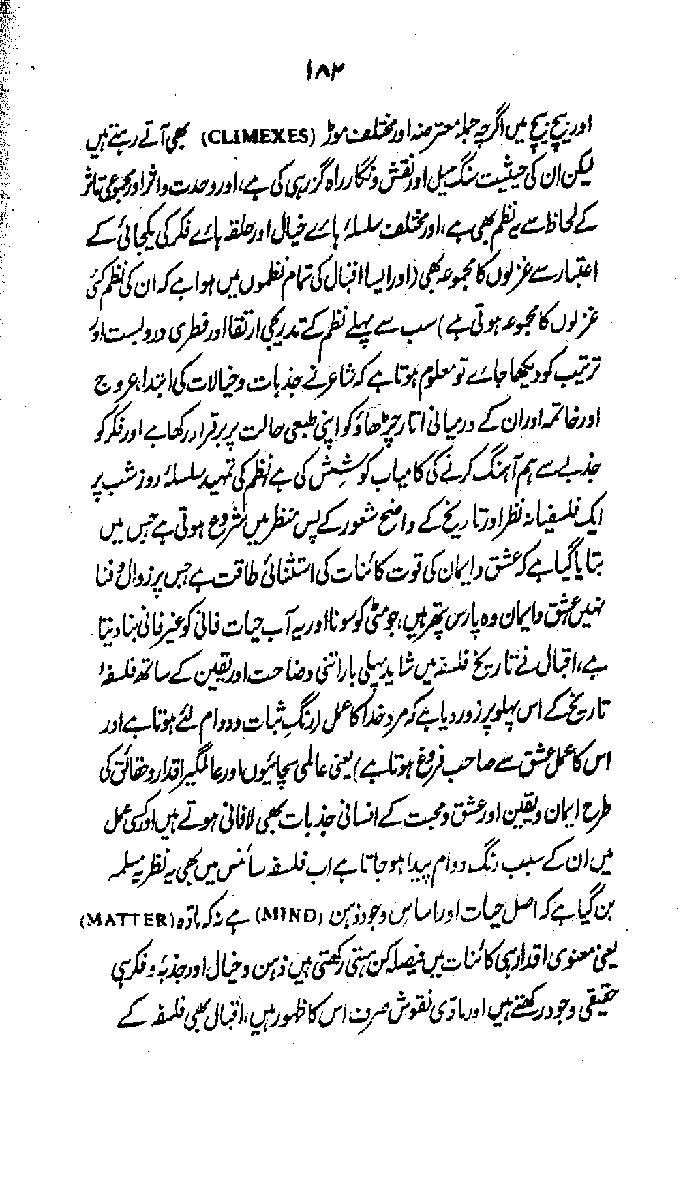 ۱۸۲
اور بیچ بیچ میں اگرچہ جملہ معترضہ اور مختلف موڑ (CLIMEXES) بھی آتے رہتے ہیں
لیکن ان کی حیثیت سنگ میل اور نقش و نگار راہ گزر ہی کی ہے، اور وحدت و اثر اور مجموعی تاثر
کے لحاظ سے یہ نظم بھی ہے، اور مختلف سلسلۂ ہائے خیال اور حلقہ ہائے فکر کی یکجائی کے
اعتبار سے غزلوں کا مجموعہ بھی (اور ایسا اقبال کی تمام نظموں میں ہوا ہے کہ ان کی نظم کئی
غزلوں کا مجموعہ ہوتی ہے) سب سے پہلے نظم کے تدریجی ارتقا اور فطری در و بست اور
ترتیب کو دیکھا جائے تو معلوم ہوتا ہے کہ شاعر نے جذبات و خیالات کی ابتدا، عروج
اور خاتمہ اور ان کے درمیانی اتار چڑھاؤ کو اپنی طبعی حالت پر برقرار رکھا ہے اور فکر کو
جذبے سے ہم آہنگ کرنے کی کامیاب کوشش کی ہے نظم کی تمہید سلسلۂ روز شب پر
ایک فلسفیانہ نظر اور تاریخ کے واضح شعور کے پس منظر میں شروع ہوتی ہے جس میں
بتایا گیا ہے کہ عشق و ایمان کی قوت کائنات کی استثنائی طاقت ہے جس پر زوال و فنا
نہیں عشق و ایمان وہ پارس پتھر ہیں، جو مٹی کو سونا اور یہ آب حیات فانی کو غیر فانی بنا دیتا
ہے، اقبال نے تاریخ فلسفہ میں شاید پہلی بار اتنی وضاحت اور یقین کے ساتھ فلسفۂ
تاریخ کے اس پہلو پر زور دیا ہے کہ مرد خدا کا عمل (رنگِ ثبات و دوام لئے ہوتا ہے اور
اس کا عمل عشق سے صاحب فروغ ہوتا ہے) یعنی عالمی سچائیوں اور عالمگیر اقدار و حقائق کی
طرح ایمان و یقین اور عشق و محبت کے انسانی جذبات بھی لافانی ہوتے ہیں اور کسی عمل
میں ان کے سبب رنگ دوام پیدا ہو جاتا ہے اب فلسفۂ سائنس میں بھی یہ نظریہ مسلمہ
بن گیا ہے کہ اصل حیات اور اساس وجود ذہن (MIND) ہے نہ کہ مادّہ (MATTER)
یعنی معنوی اقدار ہی کائنات میں فیصلہ کن ہستی رکھتی ہیں ذہن و خیال اور جذبۂ و فکر ہی
حقیقی وجود رکھتے ہیں اور مادّی نقوش صرف اس کا ظہور ہیں، اقبال بھی فلسفہ کے